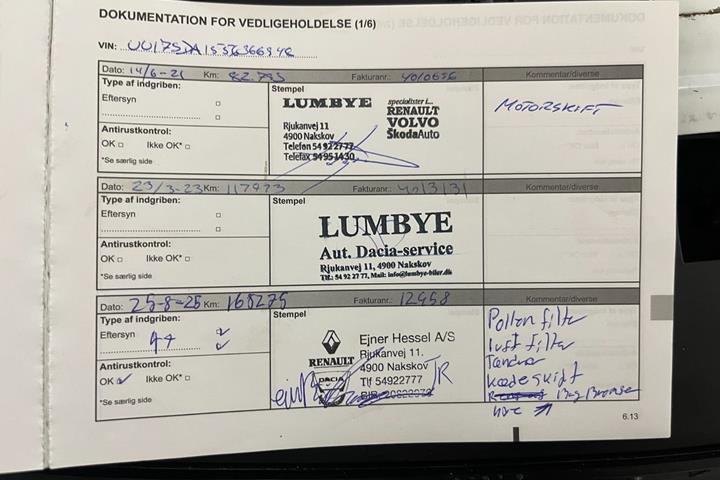 DOKUMENTATION FOR VEDLIGEHOLDELSE (1/6)
VIN:
Dato: 14/6-21 Km: 82.793 Fakturanr.: Kommentar/diverse
Type af indgriben:
Eftersyn
Antirustkontrol:
OK Ikke OK*
*Se særlig side
Stempel
LUMBYE
Rjukanvej 11
4900 Nakskov
Telefon 54 92 27 77
Telefax 54 95 14 30
specialister i...
RENAULT
VOLVO
ŠkodaAuto
MOTORSKIFT
Dato: 23/3-23 Km: 117973 Fakturanr.: Kommentar/diverse
Type af indgriben:
Eftersyn
Antirustkontrol:
OK Ikke OK*
*Se særlig side
Stempel
LUMBYE
Aut. Dacia-service
Rjukanvej 11, 4900 Nakskov
Tlf.: 54 92 27 77, Mail: info@lumbye-biler.dk
Dato: 25-8-25 Km: 168275 Fakturanr.: 12958 Kommentar/diverse
Type af indgriben:
Eftersyn
Antirustkontrol:
OK Ikke OK*
*Se særlig side
Stempel
RENAULT
DACIA
Ejner Hessel A/S
Rjukanvej 11.
4900 Nakskov
Tlf 54922777
Pollen filter
luft filter
Tændrør
kædeskift
Bag Bremser
6.13